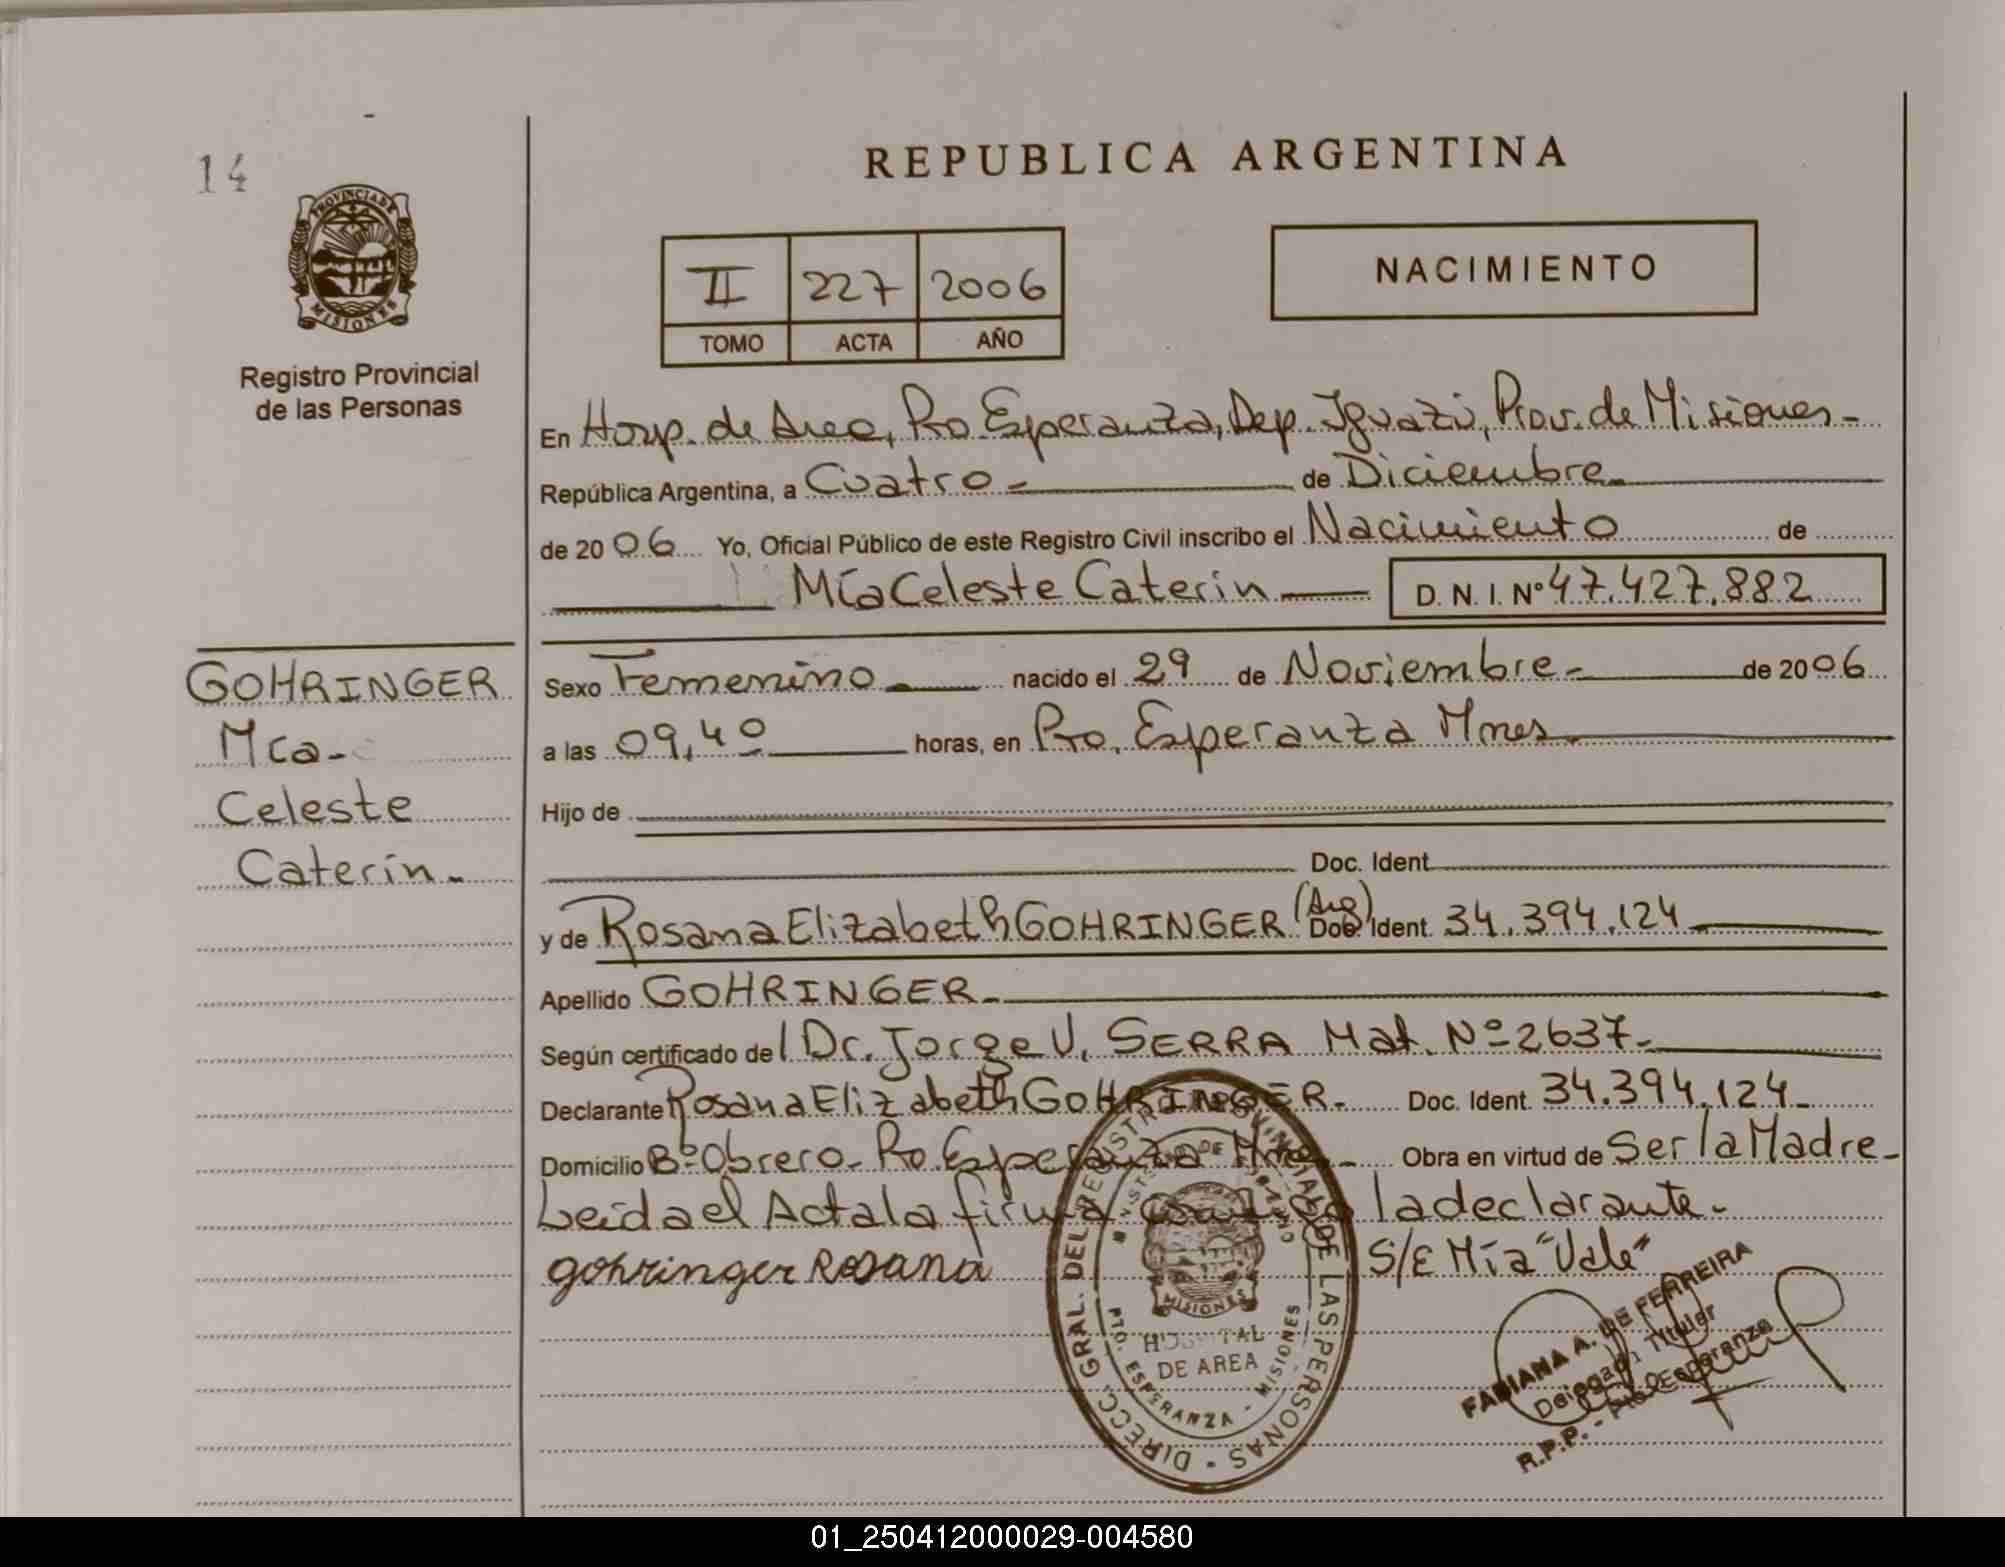 14
REPUBLICA ARGENTINA
PROVINCIA DE
MISIONES
II 227 2006
TOMO ACTA AÑO
NACIMIENTO
Registro Provincial
de las Personas
En Hosp. de Area, Pto. Esperanza, Dep. Iguazú, Prov. de Misiones-
República Argentina, a Cuatro- de Diciembre
de 2006 Yo, Oficial Público de este Registro Civil inscribo el Nacimiento de
Mía Celeste Caterin D. N. I. Nº 47.427.882
GOHRINGER
Mía-
Celeste
Caterin-
Sexo Femenino nacido el 29 de Noviembre- de 2006
a las 09,40 horas, en Pto. Esperanza Mnes
Hijo de
Doc. Ident
y de Rosana Elizabeth GOHRINGER (Arg) Doc Ident. 34.394.124
Apellido GOHRINGER-
Según certificado del Dr. Jorge V. SERRA Mat. Nº 2637-
Declarante Rosana Elizabeth GOHRINGER- Doc. Ident. 34.394.124-
Domicilio Bº Obrero- Pto. Esperanza Mnes- Obra en virtud de Ser la Madre-
Leida el Acta la firma la declarante-
gohringer Rosana S/E Mía "Vale"
DIRECC. GRAL. DEL REGISTRO PROVINCIAL DE LAS PERSONAS
MINISTERIO DE GOBIERNO
MISIONES
HOSPITAL
DE AREA
PTO. ESPERANZA - MISIONES
FABIANA A. DE FERREIRA
Delegada Titular
R.P.P. - Pto. Esperanza
01_250412000029-004580